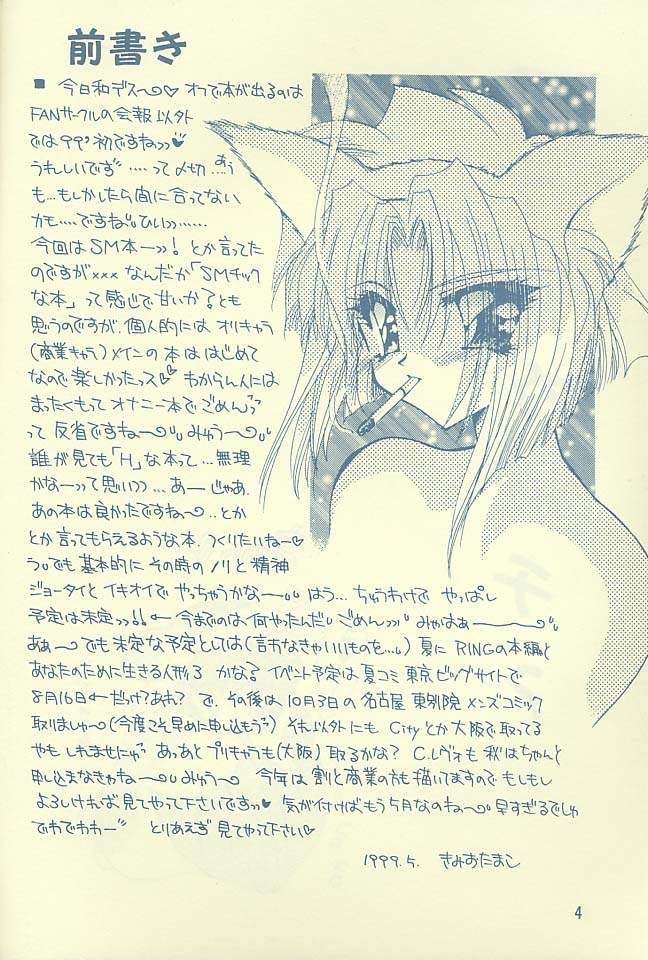 前書き
■ 今日和デス〜♡ オフで本が出るのは
FANサークルの会報以外
では99'初ですね〃♥
うれしいです゛‥‥って〆切‥あう
も…もしかしたら間に合ってない
カモ‥‥ですね〃ひい〃……
今回はSM本ー〃! とか言ってた
のですが××× なんだか「SMチック
な本」って感じで甘いか?とも
思うのですが、個人的には オリキャラ
(商業キャラ)メインの本は はじめて
なので楽しかったっス♡ わからん人には
まったくもって オナニー本でごめんっ
って 反省ですね〜〃みゅう〜〃
誰が見ても「H」な本って…無理
かなーって思い〃…あーじゃあ、
あの本は良かったですね〜‥とか
とか言ってもらえるような本、つくりたいね〜♡
う〃でも 基本的に その時の ノリと精神
ジョータイと イキオイで やっちゃうかな〜〃 はう… ちゅうわけで やっぱし
予定は未定〃!! ← 今までのは何やったんだ〃ごめん〃〃 みゃはぁー〃
あぁ〜 でも 未定な予定としては(言わなきゃいいものを…) 夏に RINGの本編と
あなたのために生きる人形3 かな? イベント予定は 夏コミ 東京ビッグサイトで
8月16日←だっけ?あれ? で、その後は 10月3日の 名古屋 東別院 メンズコミック
取りましゅ〜(今度こそ早めに申し込もう〃) それ以外にも Cityとか大阪で取ってる
やも しれませにゅ〃 あっあと プリキャラも(大阪) 取るかな? C.レヴォも 秋はちゃんと
申し込まなきゃね〜〃みゅう〜 今年は 割と商業の方も 描いてますので もしもし
よろしければ 見てやって下さいです〃♥ 気が付けば もう5月なのね〜〃 早すぎるでしゅ
でわでわわー〃 とりあえず 見てやって下さい♡
1999.5. きみおたまこ
4